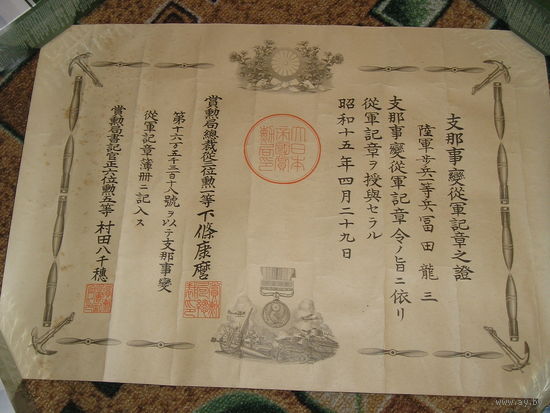 支那事變從軍記章之證
陸軍歩兵一等兵冨田龍三
支那事變從軍記章令ノ旨ニ依リ
從軍記章ヲ授與セラル
昭和十五年四月二十九日
大日本
帝國賞
勳局印
賞勲局總裁從三位勲一等下條康麿
八號ヲ以テ支那事變
從軍記章簿册ニ記入ス
賞勲局書記官正六位勲五等村田八千穗
www.ay.by